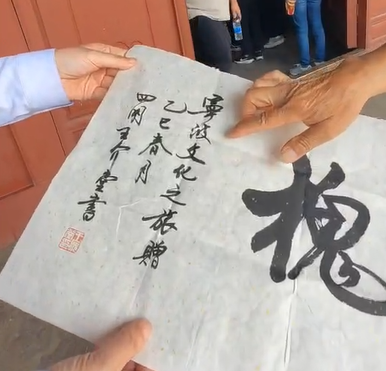 槐
寧波文化之旅贈
乙巳春月
四明王介堂書